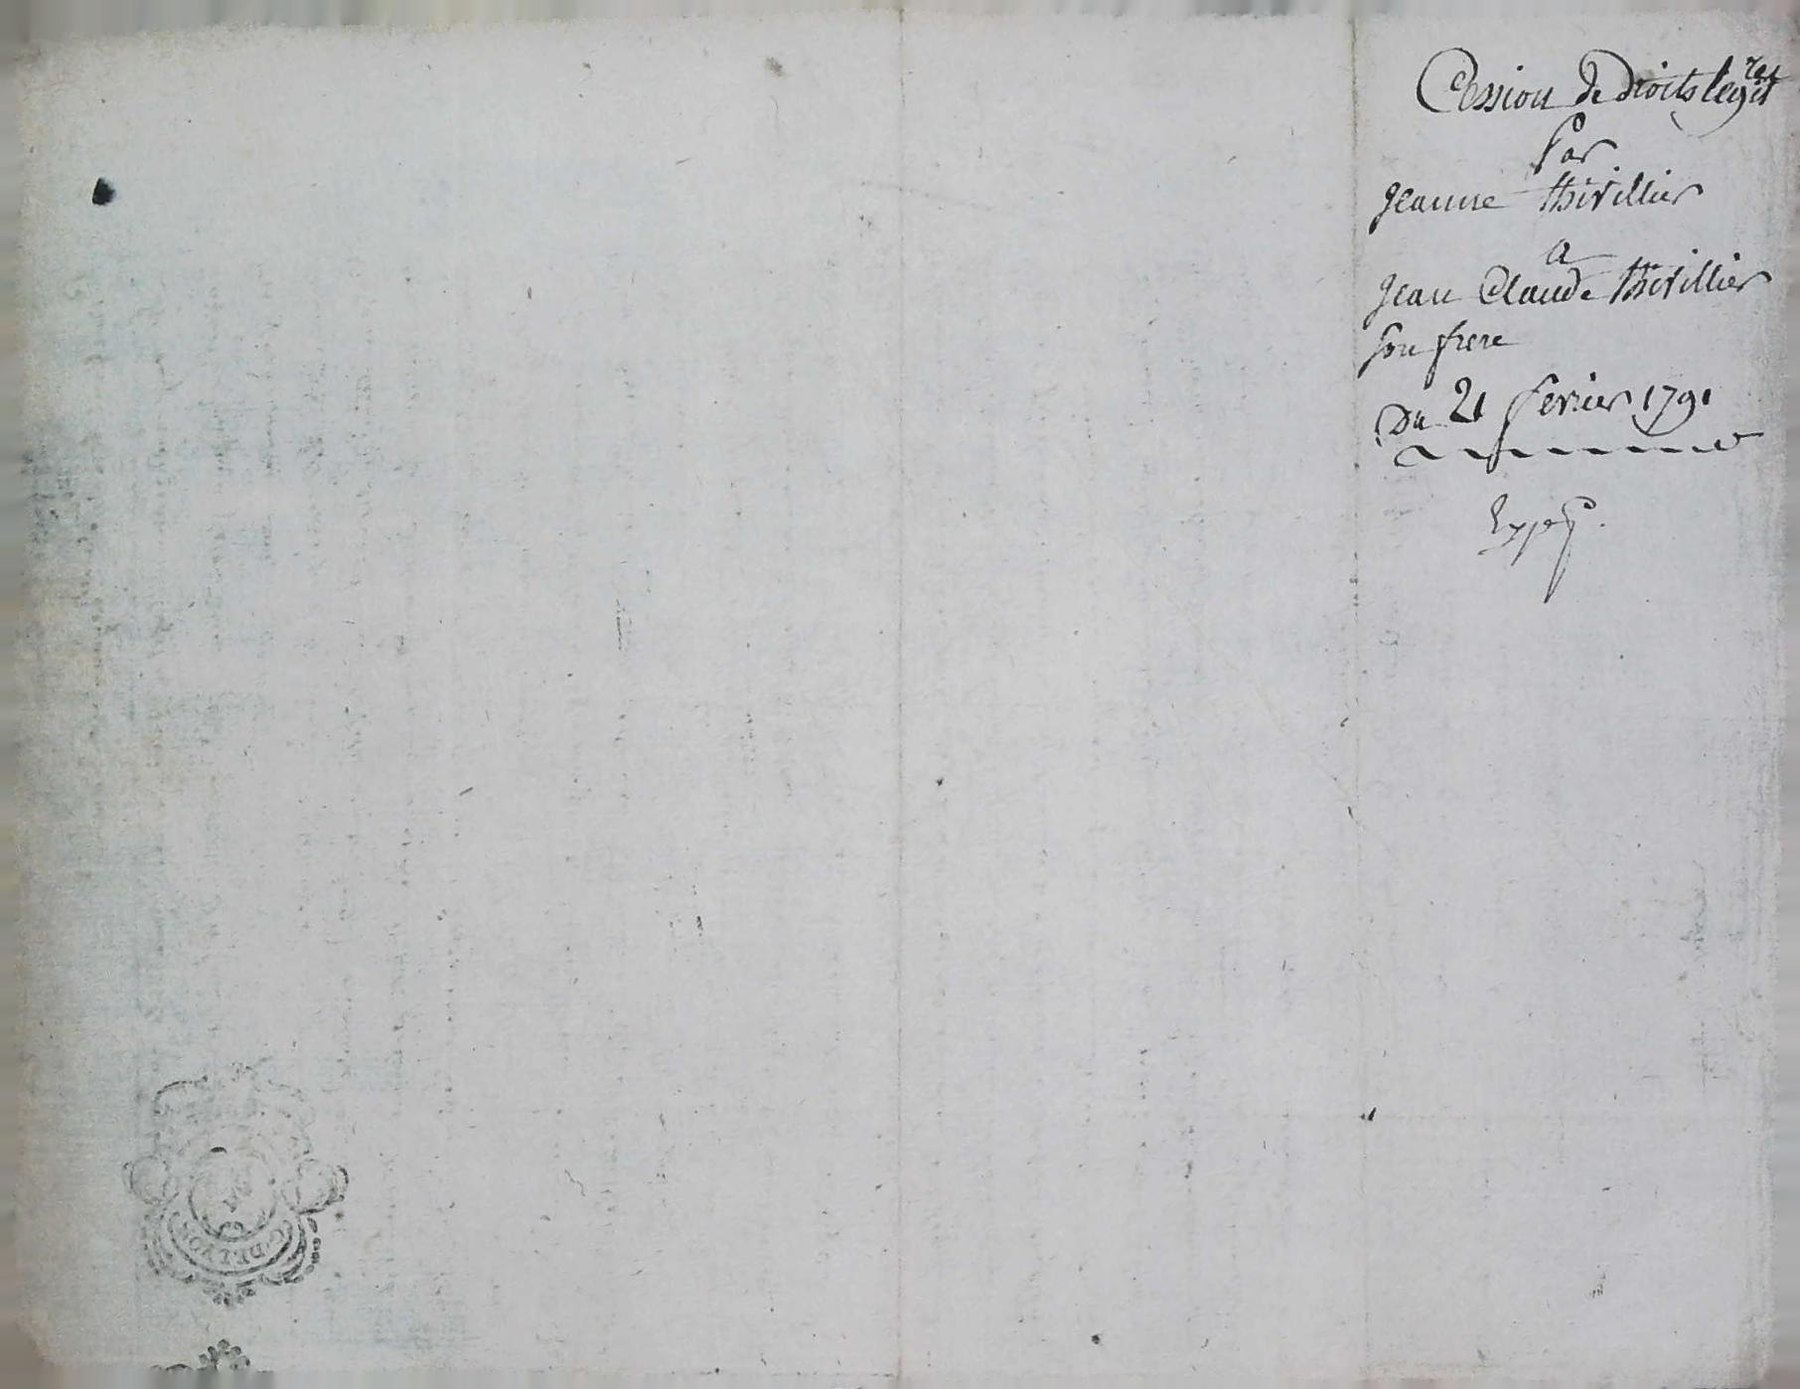 Cession de Droits legit^res
Par
Jeanne thivillier
a
Jean Claude thivillier
son frere
Du 21 fevrier 1791
Exped.
G. DE LYON